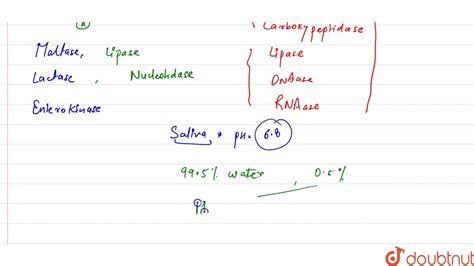 Carboxypeptidase
Maltase, Lipase
Lipase
Lactase, Nucleotidase
DNAase
Enterokinase
RNAase
Saliva → pH. 6.8
99.5% water, 0.5%
doubtnut